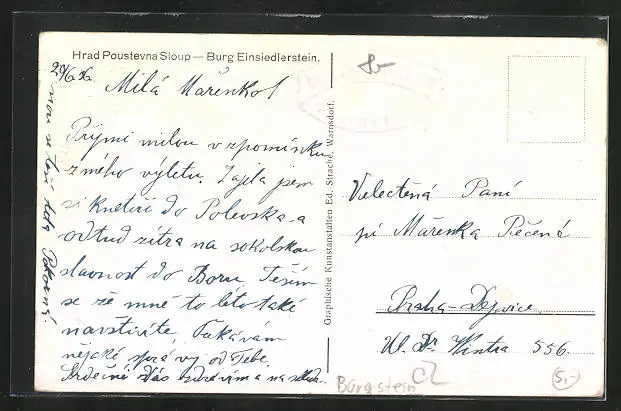 Hrad Poustevna Sloup — Burg Einsiedlerstein.
29/6 36
Milá Mařenko!
Přijmi milou vzpomínku
z mého výletu. Zajela jsem
si k neteři do Polevska a
odtud zítra na sokolskou
slavnost do Boru. Těším
se že mne to léto také
navštívíte. Čekávám
nějaké zprávy od Tebe.
Srdečně Vás zdravím a na
se teší
Graphische Kunstanstalten Ed. Strache, Warnsdorf.
Velectěná Paní
pí Mařenka Pečená
Praha-Dejvice
Ul. Dr Wintra 556
Bürgstein
5,-